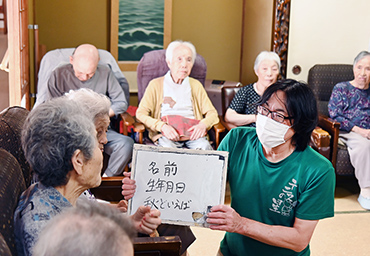 名前
生年月日
秋といえば